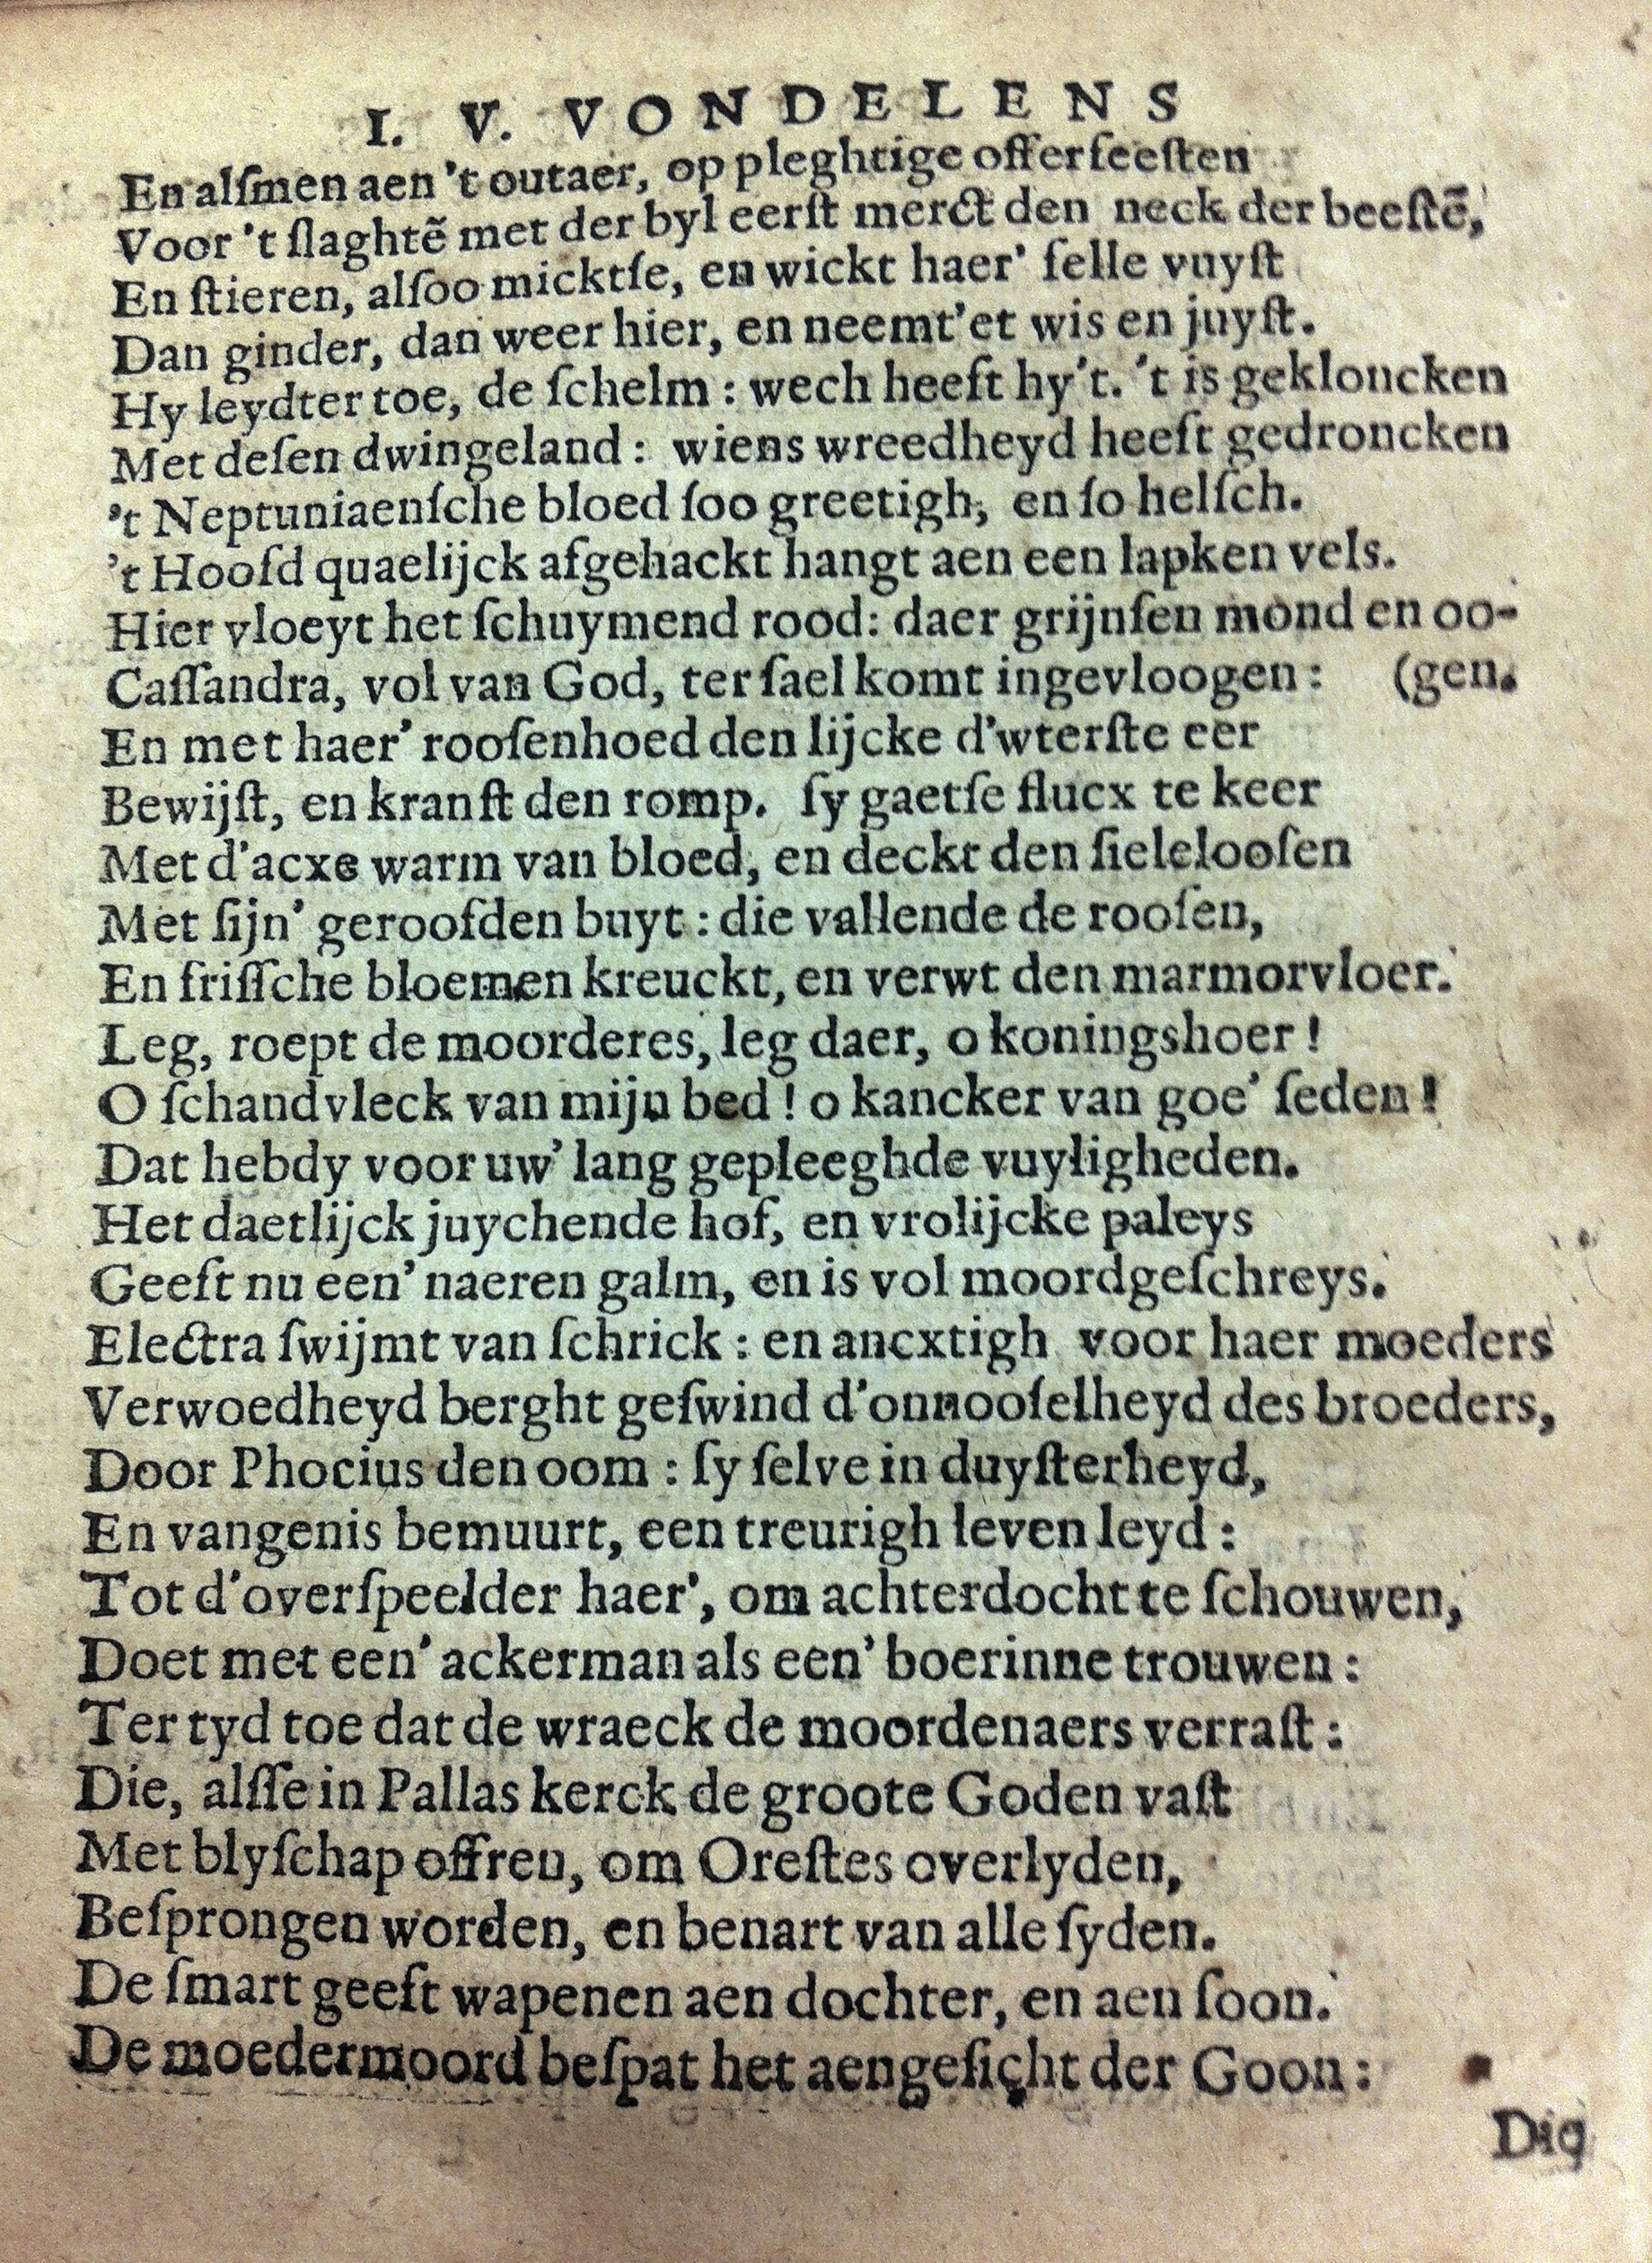 I. V. VONDELENS
En alſmen aen 't outaer, op pleghtige offerfeeſten
Voor 't ſlaghtẽ met der byl eerſt merct den neck der beeſtẽ,
En ſtieren, alſoo micktſe, en wickt haer' felle vuyſt
Dan ginder, dan weer hier, en neemt'et wis en juyſt.
Hy leydter toe, de ſchelm : wech heeft hy't. 't is gekloncken
Met deſen dwingeland : wiens wreedheyd heeft gedroncken
't Neptuniaenſche bloed ſoo greetigh, en ſo helſch.
't Hoofd quaelijck afgehackt hangt aen een lapken vels.
Hier vloeyt het ſchuymend rood: daer grijnſen mond en oo-
Caſſandra, vol van God, ter ſael komt ingevloogen : (gen.
En met haer' rooſenhoed den lijcke d'wterſte eer
Bewijſt, en kranſt den romp. ſy gaetſe flucx te keer
Met d'acxe warm van bloed, en deckt den ſieleloofen
Met ſijn' geroofden buyt : die vallende de rooſen,
En friſſche bloemen kreuckt, en verwt den marmorvloer.
Leg, roept de moorderes, leg daer, o koningshoer !
O ſchandvleck van mijn bed ! o kancker van goe' ſeden !
Dat hebdy voor uw' lang gepleeghde vuyligheden.
Het daetlijck juychende hof, en vrolijcke paleys
Geeft nu een' naeren galm, en is vol moordgeſchreys.
Electra ſwijmt van ſchrick : en ancxtigh voor haer moeders
Verwoedheyd berght geſwind d'onnooſelheyd des broeders,
Door Phocius den oom : ſy ſelve in duyſterheyd,
En vangenis bemuurt, een treurigh leven leyd :
Tot d'overſpeelder haer', om achterdocht te ſchouwen,
Doet met een' ackerman als een' boerinne trouwen :
Ter tyd toe dat de wraeck de moordenaers verraſt :
Die, alſſe in Pallas kerck de groote Goden vaſt
Met blyſchap offren, om Oreſtes overlyden,
Beſprongen worden, en benart van alle ſyden.
De ſmart geeft wapenen aen dochter, en aen ſoon.
De moedermoord beſpat het aengeſicht der Goon :
Dig